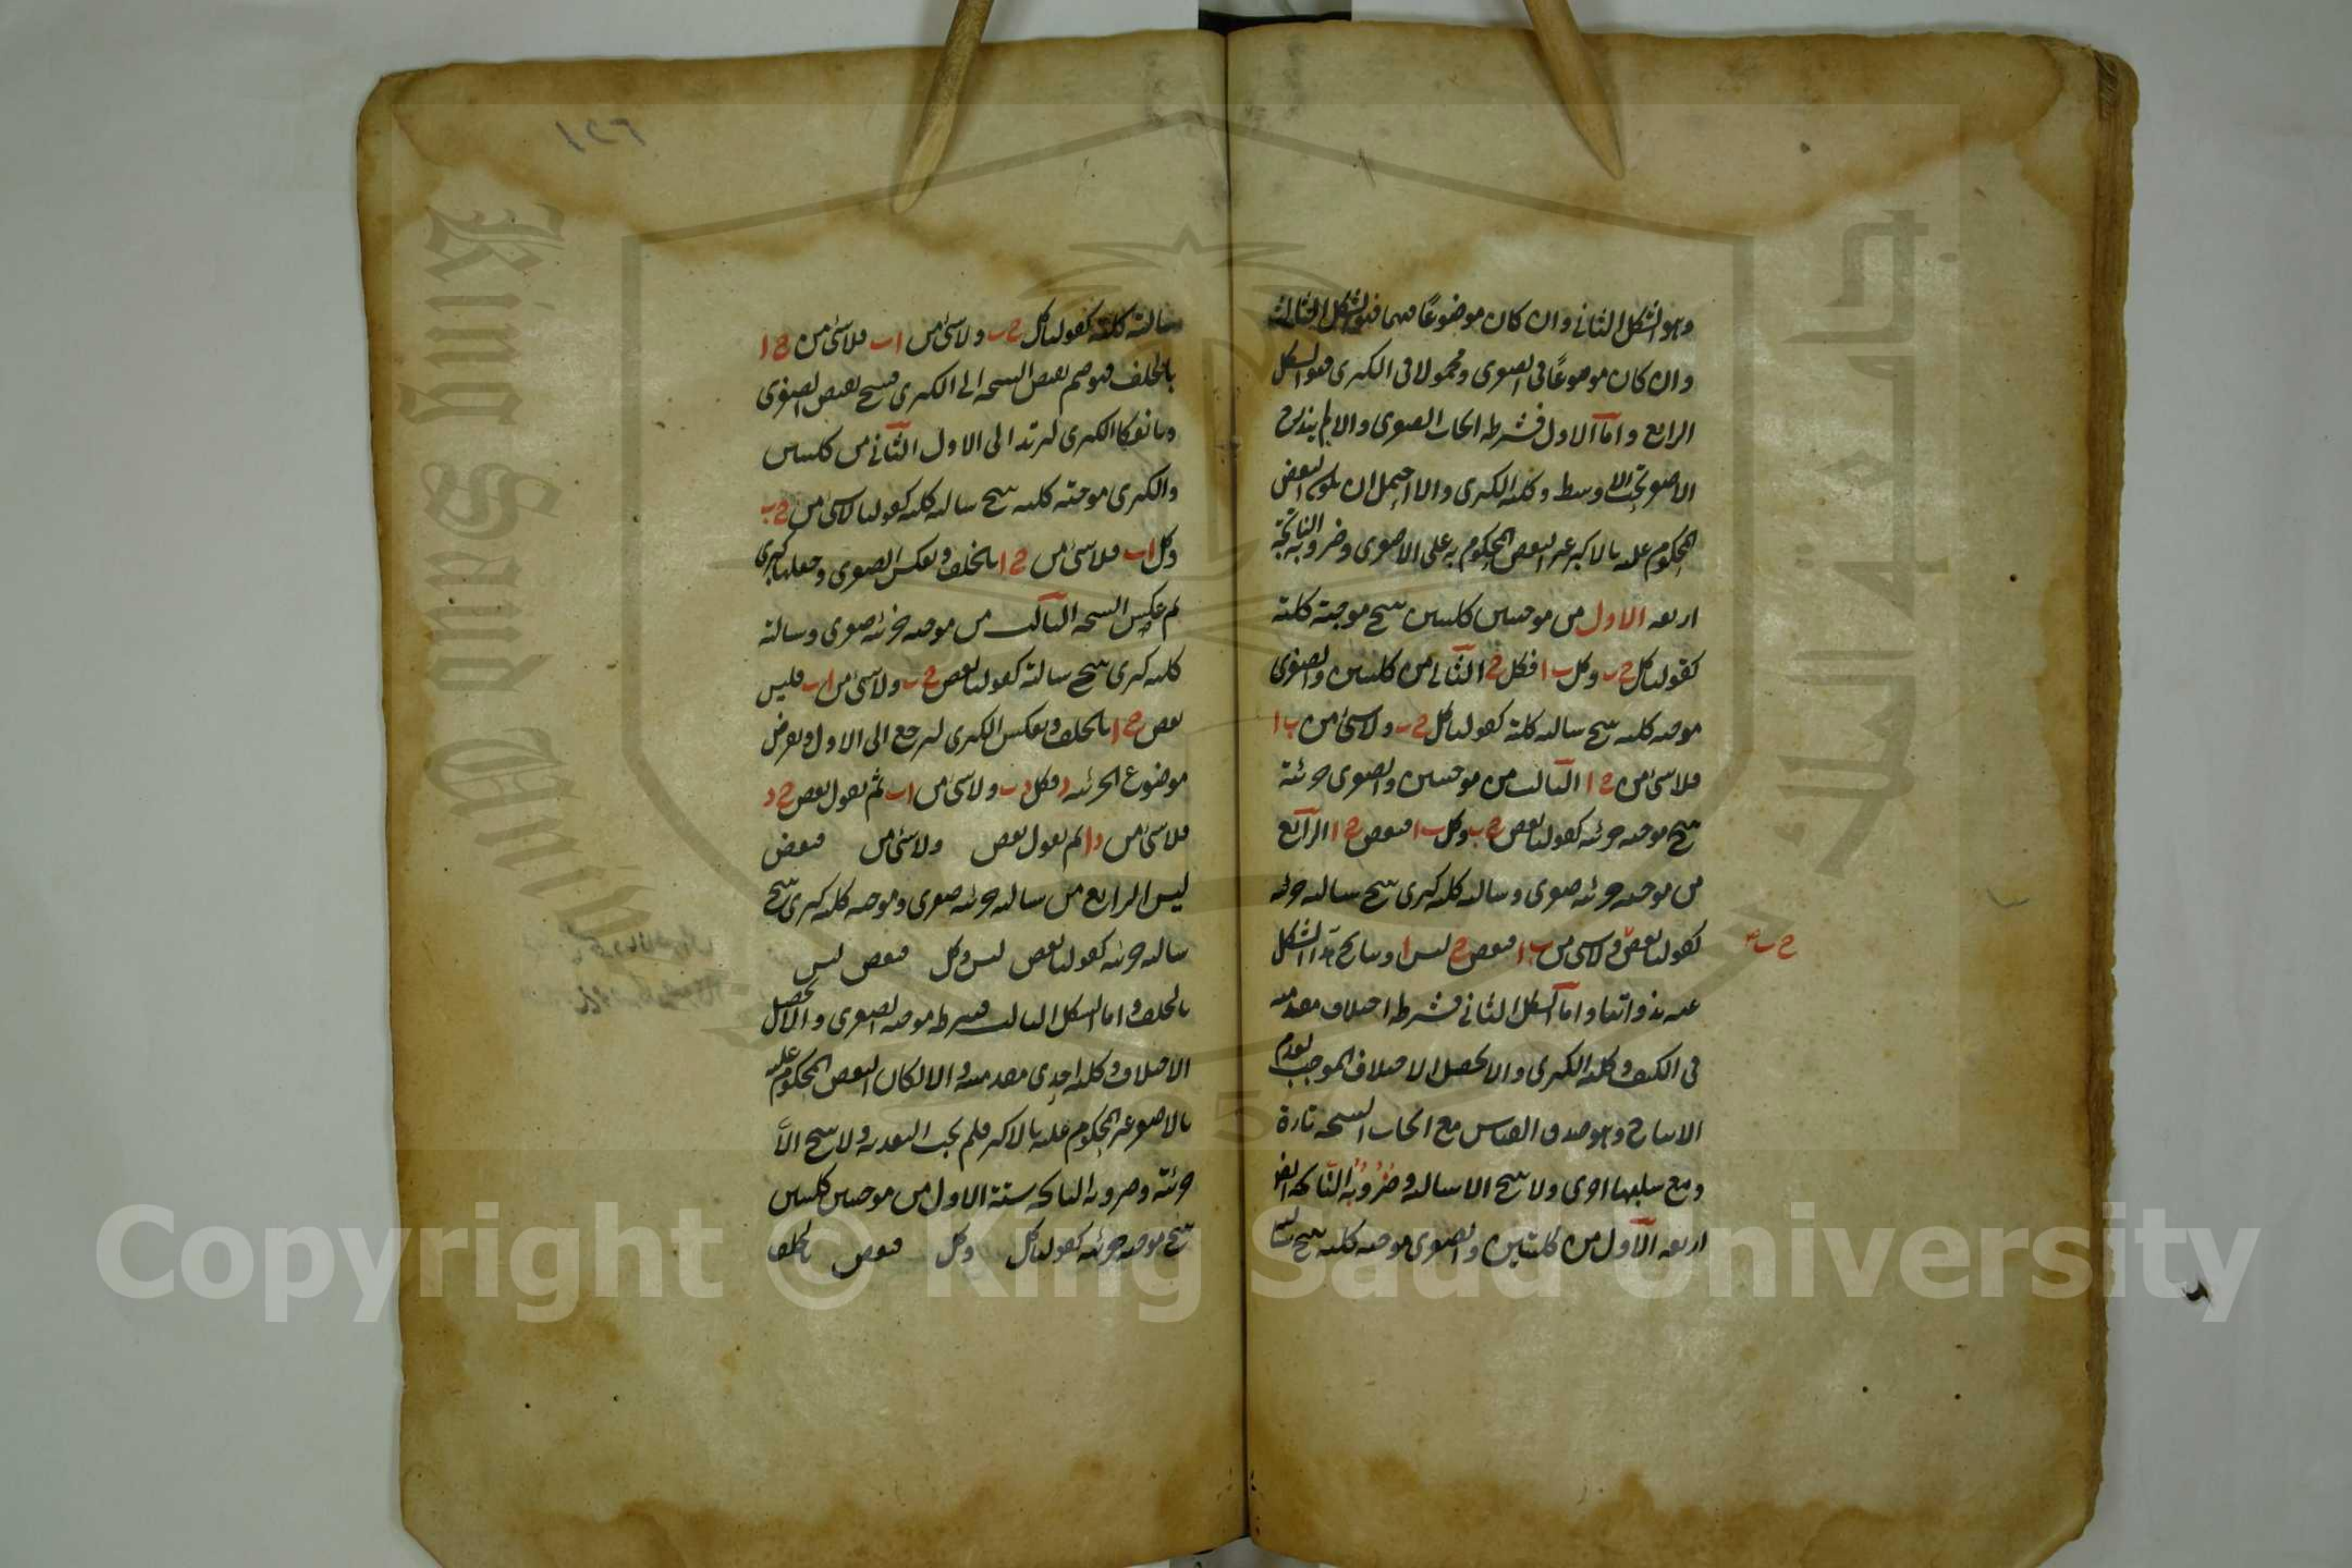 وهو الشكل الثاني وان كان موضوعًا فيهما فهو الشكل الثالث
وان كان موضوعًا في الصغرى ومحمولا في الكبرى فهو الشكل
الرابع واما الاول فشرطه ايجاب الصغرى والا لم يندرج
الاصغر تحت الاوسط وكلية الكبرى والا احتمل ان يكون البعض
المحكوم عليه بالاكبر غير البعض المحكوم به على الاصغر وضروبه الناتجة
اربعة الاول من موجبتين كليتين ينتج موجبة كلية
كقولنا كل ج ب وكل ب ا فكل ج ا الثاني من كليتين والصغرى
موجبة كلية ينتج سالبة كلية كقولنا كل ج ب ولا شئ من ب ا
فلا شئ من ج ا الثالث من موجبتين والصغرى جزئية
ينتج موجبة جزئية كقولنا بعض ج ب وكل ب ا فبعض ج ا الرابع
من موجبة جزئية صغرى وسالبة كلية كبرى ينتج سالبة جزئية
كقولنا بعض ولا شئ من ب ا فبعض ج ليس ا ونتايج هذا الشكل
ج ب صح
بينة بذواتها واما الشكل الثاني فشرطه اختلاف مقدمتيه
في الكيف وكلية الكبرى والا لحصل الاختلاف الموجب لعدم
الانتاج وهو صدق القياس مع ايجاب النتيجة تارة
ومع سلبها اخرى ولا ينتج الا سالبة وضروبه الناتجة ايضا
اربعة الاول من كليتين والصغرى موجبة كلية ينتج
سالبة كلية كقولنا كل ج ب ولا شئ من ا ب فلا شئ من ج ا
بالخلف فهو ضم نقيض النتيجة الى الكبرى فينتج نقيض الصغرى
وبانعكاس الكبرى ليرتد الى الاول الثاني من كليتين
والكبرى موجبة كلية ينتج سالبة كلية كقولنا لا شئ من ج ب
وكل ا ب فلا شئ من ج ا بالخلف وبعكس الصغرى وجعلها كبرى
ثم عكس النتيجة الثالث من موجبة جزئية صغرى وسالبة
كلية كبرى ينتج سالبة كقولنا بعض ج ب ولا شئ من ا ب فليس
بعض ج ا بالخلف وبعكس الكبرى ليرجع الى الاول وبفرض
موضوع الجزئية د فكل د ب ولا شئ من ا ب ثم نقول بعض ج د
فلا شئ من د ا ثم نقول بعض ولا شئ من فبعض
ليس الرابع من سالبة جزئية صغرى وموجبة كلية كبرى ينتج
سالبة جزئية كقولنا بعض ليس وكل فبعض ليس
بالخلف واما الشكل الثالث فشرطه موجبة الصغرى والا لحصل
الاختلاف وكلية احدى مقدمتيه والا لكان البعض المحكوم عليه
بالاصغر غير المحكوم عليه بالاكبر فلم يجب التعدية ولا ينتج الا
جزئية وضروبه الناتجة ستة الاول من موجبتين كليتين
ينتج موجبة جزئية كقولنا كل وكل فبعض بالخلف